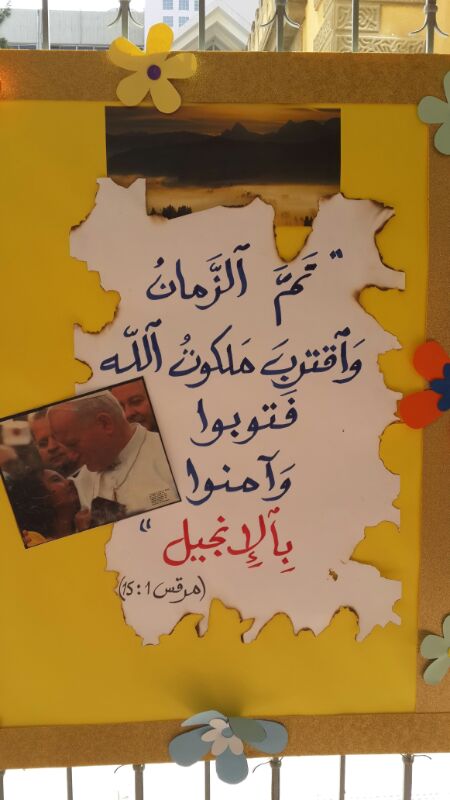 "تَمَّ ٱلزَّمانُ
وَٱقتربَ مَلكوتُ ٱللّه
فَتوبوا
وَآمنوا
بِٱلإِنجيل"
(مرقس 1: 15)